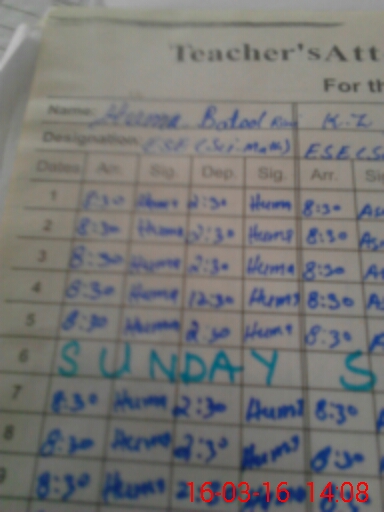 Teacher's Att
For th
Name: Huma Batool K.Z
Designation: ESE (Sci-Math) E.S.E (S
Dates Arr. Sig. Dep. Sig. Arr. Si
1 8:30 Huma 2:30 Huma 8:30
2 8:30 Huma 2:30 Huma 8:30
3 8:30 Huma 2:30 Huma 8:30
4 8:30 Huma 12:30 Huma 8:30
5 8:30 Huma 2:30 Huma 8:30
6 SUNDAY S
7 8:30 Huma 2:30 Huma 8:30
8 8:30 Huma 2:30 Huma 8:30
9 8:30 Huma
16-03-16 14:08